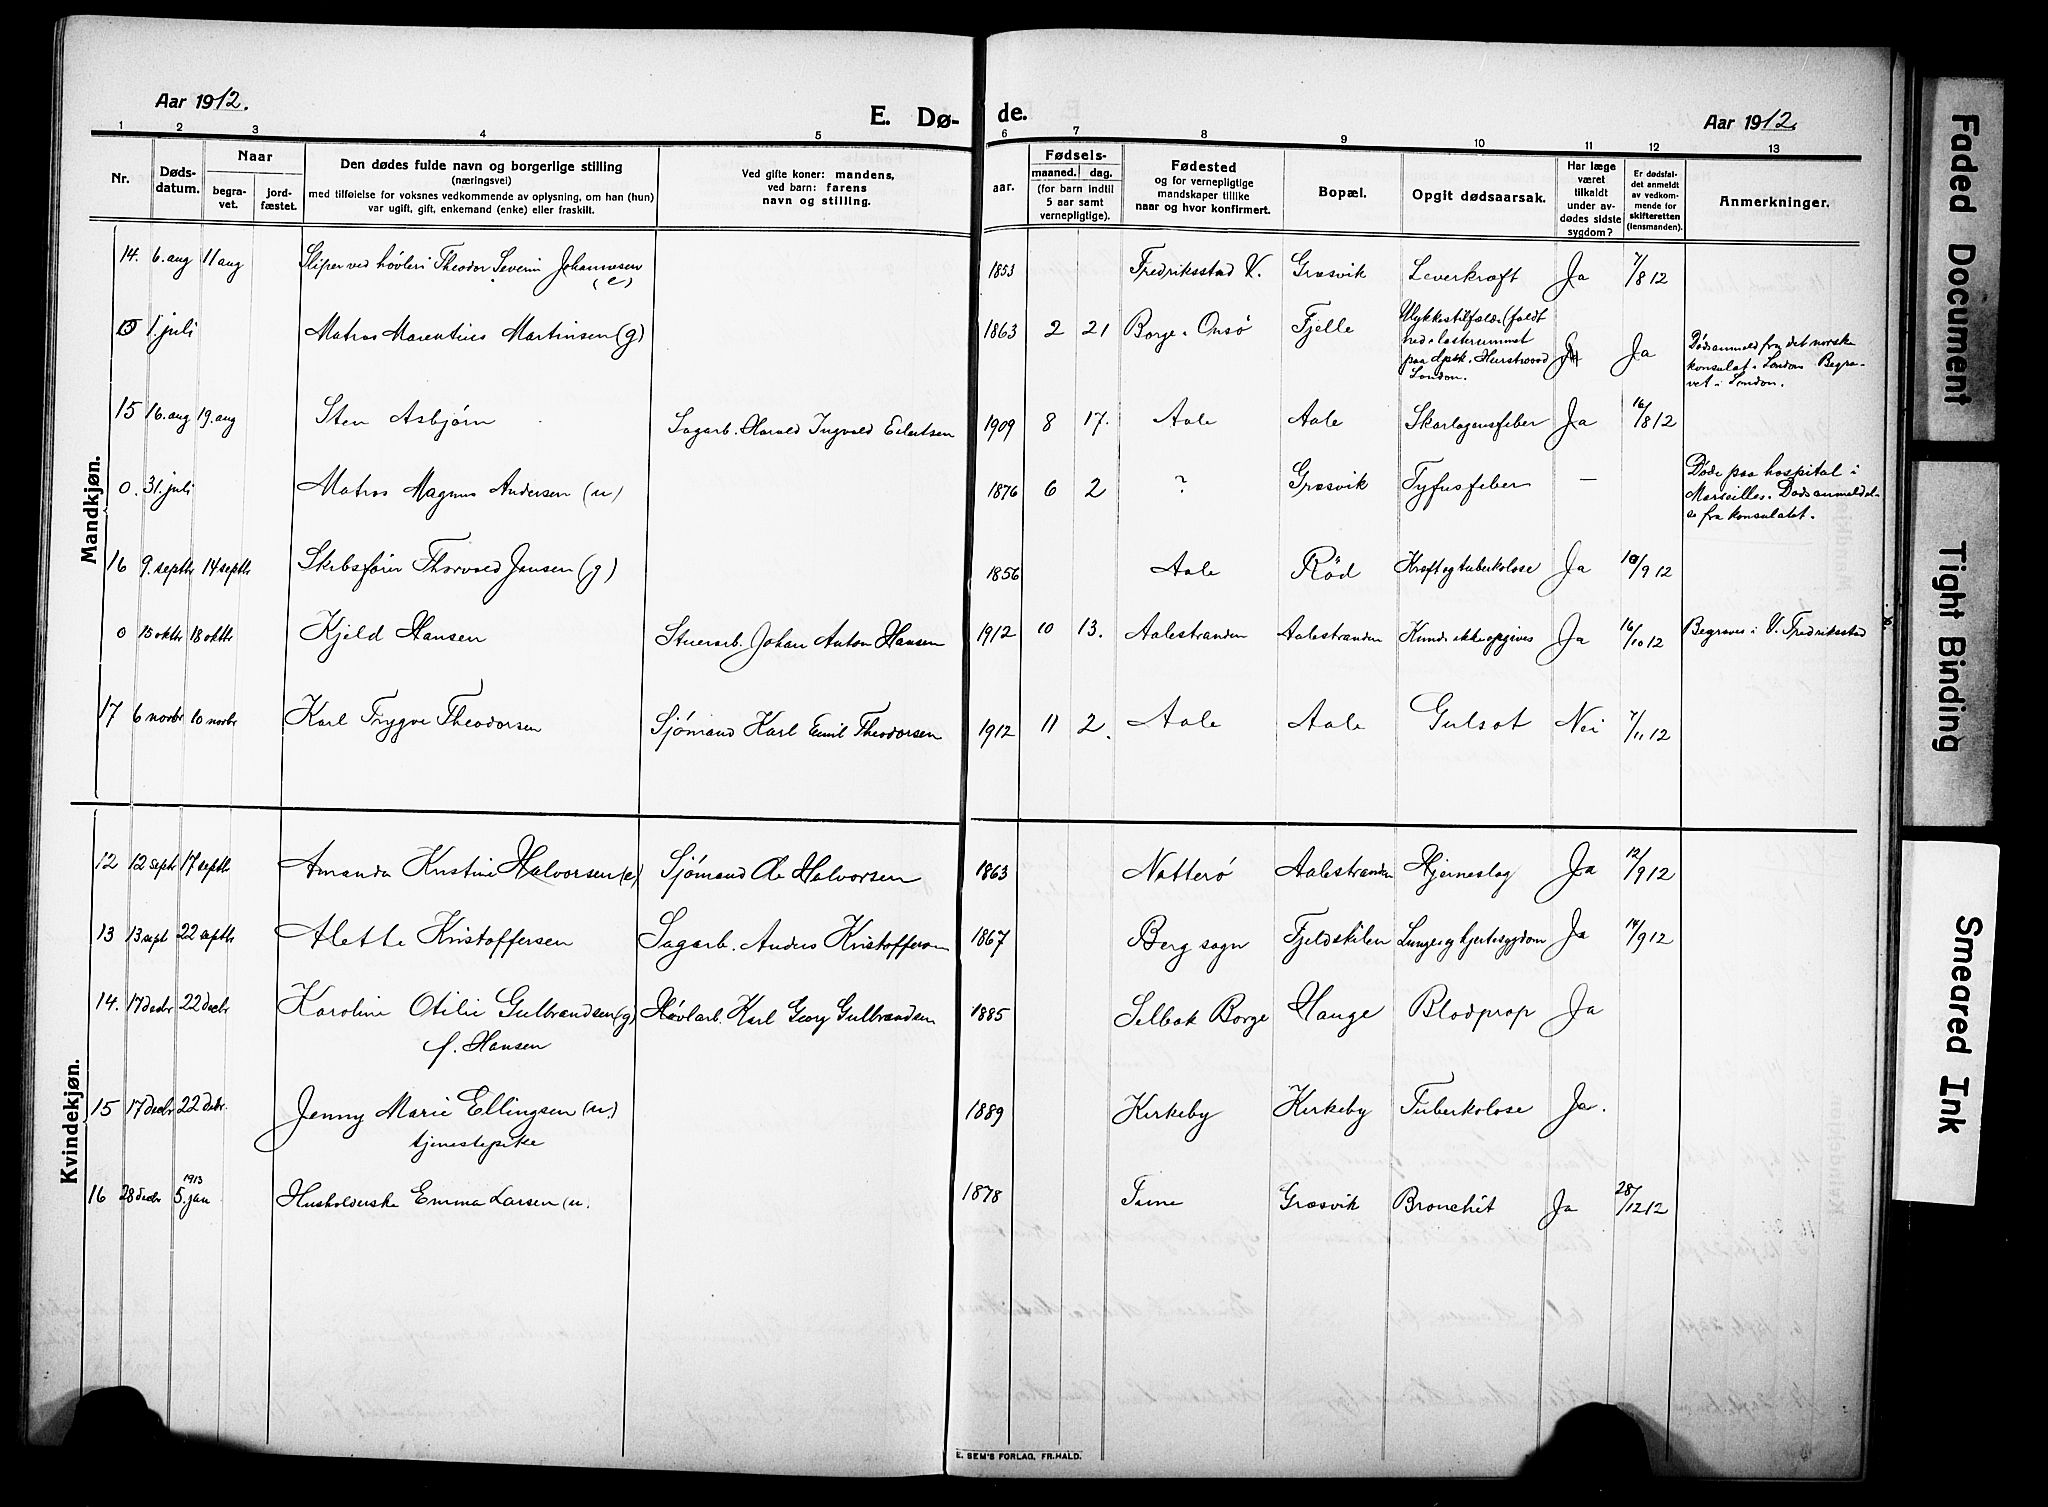 Aar 1912.
E. Dø-
de.
Aar 1912.
1 2 3 4 5 6 7 8 9 10 11 12 13
Nr.
Døds-
datum.
Naar
begra-
vet.
jord-
fæstet.
Den dødes fulde navn og borgerlige stilling
(næringsvei)
med tilføielse for voksnes vedkommende av oplysning, om han (hun)
var ugift, gift, enkemand (enke) eller fraskilt.
Ved gifte koner: mandens,
ved barn: farens
navn og stilling.
aar.
Fødsels-
maaned. dag.
(for barn indtil
5 aar samt
vernepligtige).
Fødested
og for vernepligtige
mandskaper tillike
naar og hvor konfirmert.
Bopæl.
Opgit dødsaarsak.
Har læge
været
tilkaldt
under av-
dødes sidste
sygdom?
Er dødsfal-
det anmeldt
av vedkom-
mende for
skifteretten
(lensmanden).
Anmerkninger.
Mandkjøn.
14. 6. aug 11 aug Sliper ved høvleri Theodor Severin Johannesen (e) 1853 Fredriksstad V. Græsvik Leverkræft Ja 7/8 12
1. juli Matros Marentius Martinsen (g) 1863 2 21 Borge i Onsø Fjelle Ulykkestilfælde (faldt
ned i lasterummet
paa dpsk. Hurstwood
London.
Ja
Dødsanmeld fra det norske
konsulat i London Begra-
vet i London.
15 16. aug 19. aug Sten Asbjørn Sagarb. Harald Ingvald Eilertsen 1909 8 17. Aale Aale Skarlagensfeber Ja 16/8 12
0. 31. juli Matros Magnus Andersen (u) 1876 6 2 ? Græsvik Tyfusfeber —
Døde paa hospital i
Marseilles. Dødsanmeldel-
se fra konsulatet.
16 9. septbr 14 septbr Skibsfører Thorvald Jansen (g) 1856 Aale Rød Kræft og tuberkolose Ja 10/9 12
0 15 oktbr 18 oktbr Kjeld Hansen Stuerarb. Johan Anton Hansen 1912 10 13. Aalestranden Aalestranden Kunde ikke opgives Ja 16/10 12 Begraves i V. Fredriksstad
17 6 novbr 10 novbr Karl Trygve Theodorsen Sjømand Karl Emil Theodorsen 1912 11 2. Aale Aale Gulsot Nei 7/11 12
Kvindekjøn.
12 12 septbr 17 septbr Amanda Kristine Halvorsen (e) Sjømand Ole Halvorsen 1863 Nøtterø Aalestranden Hjerneslag Ja 12/9 12
13 13 sept 22 septbr Alette Kristoffersen Sagarb. Anders Kristoffersen 1867 Berg sogn Fjeldskilen Lunge og hjertesygdom Ja 14/9 12
14. 17 decbr 22 decbr Karoline Otilie Gulbrandsen (g) Høvlarb. Karl Georg Gulbrandsen 1885 Selbak Borge Hauge Blodprop Ja
f. Hansen
15 17 decbr 22 decbr. Jenny Marie Ellingsen (u) 1889 Kirkeby Kirkeby Tuberkolose Ja.
tjenestepike
1913
16 28 decbr 5. jan Husholderske Emma Larsen (u. 1878 Tune Græsvik Bronchit Ja 28/12 12
E. SEM'S FORLAG, FR.HALD.
Faded Document
Tight Binding
Smeared Ink